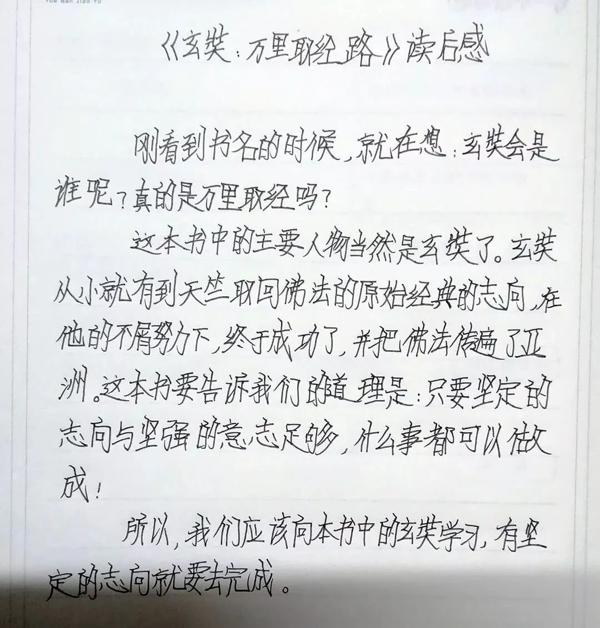 《玄奘:万里取经路》读后感
刚看到书名的时候,就在想:玄奘会是
谁呢?真的是万里取经吗?
这本书中的主要人物当然是玄奘了。玄奘
从小就有到天竺取回佛法的原始经典的志向,在
他的不屑努力下,终于成功了,并把佛法传遍了亚
洲。这本书要告诉我们的道理是:只要坚定的
志向与坚强的意志足够,什么事都可以做
成!
所以,我们应该向本书中的玄奘学习,有坚
定的志向就要去完成。